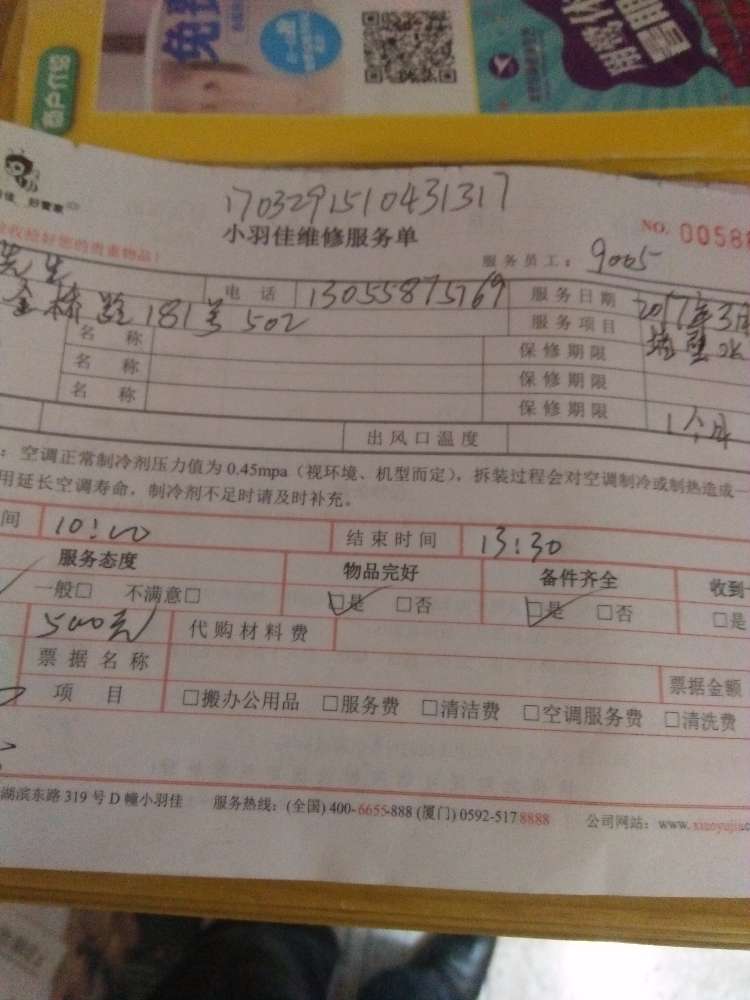 免费
1703291510431317
好管家
小羽佳维修服务单
NO. 0058
收拾好您的贵重物品!
服务员工: 9005
先生
电 话 13055875769 服务日期 2017年3月
181号 502 服务项目
名 称 保修期限
名 称 保修期限
名 称 保修期限 1个月
出风口温度
:空调正常制冷剂压力值为 0.45mpa(视环境、机型而定),拆装过程会对空调制冷或制热造成一
用延长空调寿命,制冷剂不足时请及时补充。
间 10:00 结束时间 13:30
服务态度 物品完好 备件齐全 收到
一般□ 不满意□ ☑是 □否 ☑是 □否 □是
500元 代购材料费
票据名称 票据金额
项 目 □搬办公用品 □服务费 □清洁费 □空调服务费 □清洗费
湖滨东路 319 号 D 幢小羽佳 服务热线:(全国) 400-6655-888 (厦门) 0592-517 8888 公司网站:www.xiaoyujia